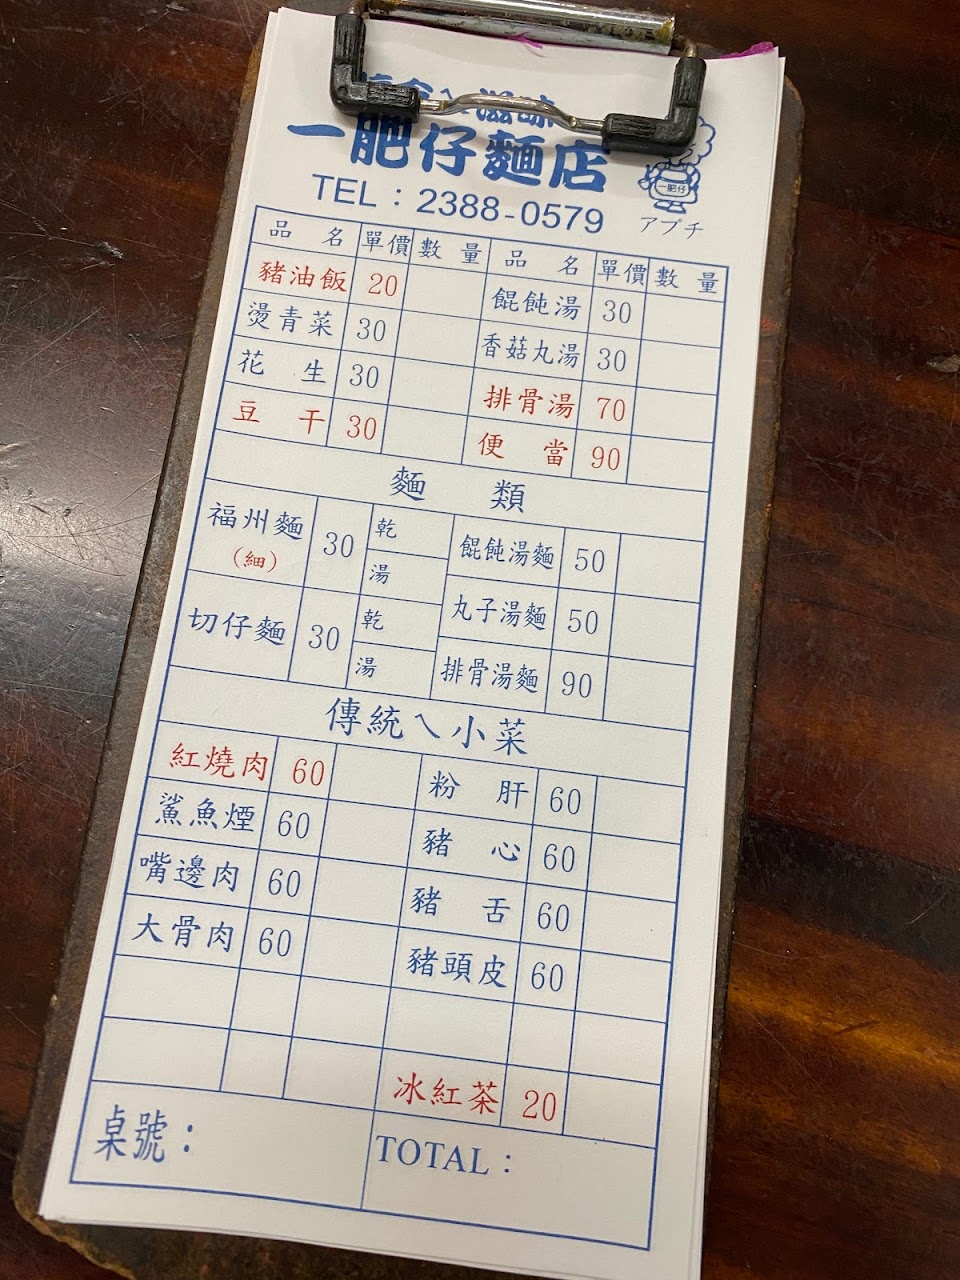 滋味
一肥仔麵店
TEL：2388-0579
一肥仔
アプチ
品名 單價 數量 品名 單價 數量
豬油飯 20 餛飩湯 30
燙青菜 30 香菇丸湯 30
花生 30 排骨湯 70
豆干 30 便當 90
麵類
福州麵 (細) 30 乾 湯 餛飩湯麵 50
丸子湯麵 50
切仔麵 30 乾 湯 排骨湯麵 90
傳統ㄟ小菜
紅燒肉 60 粉肝 60
鯊魚煙 60 豬心 60
嘴邊肉 60 豬舌 60
大骨肉 60 豬頭皮 60
冰紅茶 20
桌號： TOTAL：